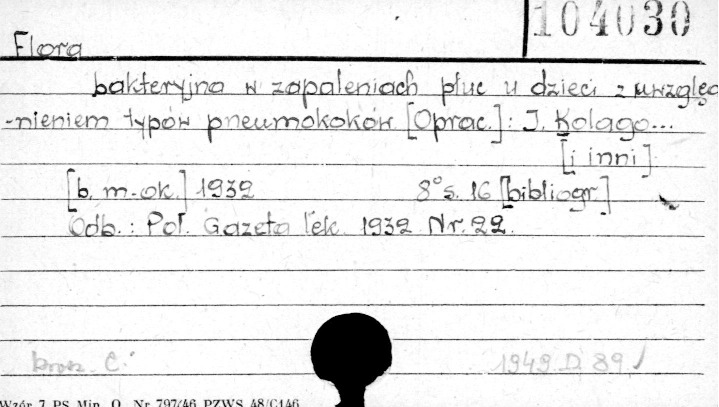 104030
Flora
bakteryjna w zapaleniach płuc u dzieci z uwzględ
-nieniem typów pneumokoków [Oprac.]: J. Kolago...
[i inni].
[b. m-ok.] 1932 8° s. 16 [bibliogr.]
Odb.: Pol. Gazeta lek. 1932 Nr. 22.
brosz. C. 1949 D 89
Wzór 7 PS Min. O. Nr 797/46 PZWS 48/C146